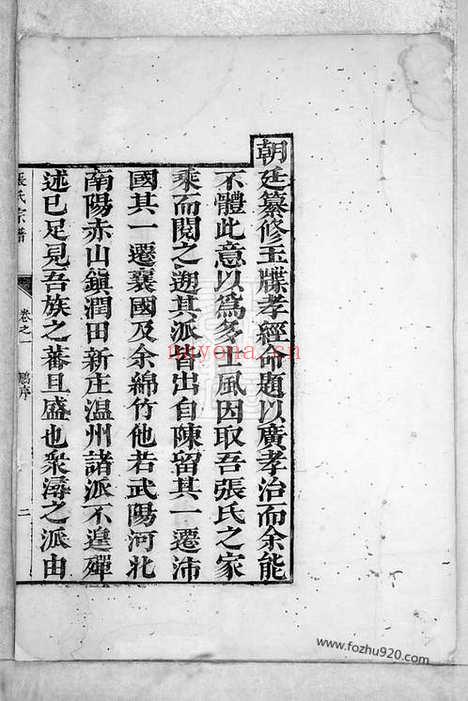 朝廷纂修玉牒孝經命題以廣孝治而余能
不體此意以為多士風因取吾張氏之家
乘而閱之遡其派皆出自陳留其一遷沛
國其一遷襄國及余綿竹他若武陽河北
南陽赤山鎮潤田新庄温州諸派不遑殫
述已足見吾族之蕃且盛也衆潯之派由
張氏宗譜 卷之一 鵬序 二
nayona.cn
www.fozhu920.com